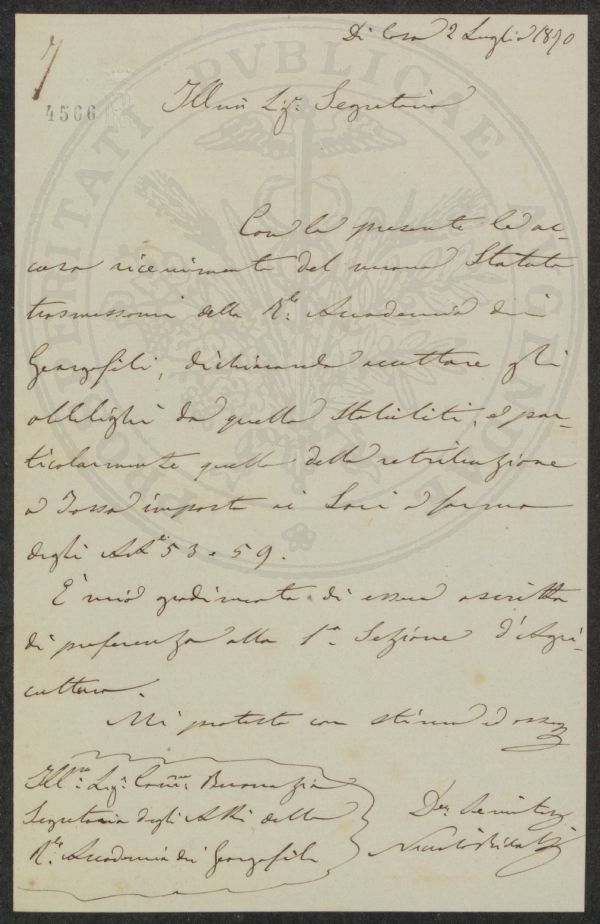 Di Casa 2 Luglio 1890
7
4566
PROSPERITATI PVBLICAE AVGENDAE
Illmo Sigr. Segretario
Con la presente le ac-
cuso ricevimento del nuovo Statuto
trasmessomi dalla Rle. Accademia dei
Georgofili, dichiarando accettare gli
obblighi da quello stabiliti, e par-
ticolarmente quello della retribuzione
o Tassa imposta ai Soci a forma
degli Arti 53 e 59.
È mio gradimento di essere ascritto
di preferenza alla 1a. Sezione d'Agri-
cultura.
Mi protesto con stima ed osseq
Illmo. Sigr. Comm.
Segretario degli Atti della
Rle. Accademia dei Georgofili
Dev. Servitore
Niccolò Ridolfi